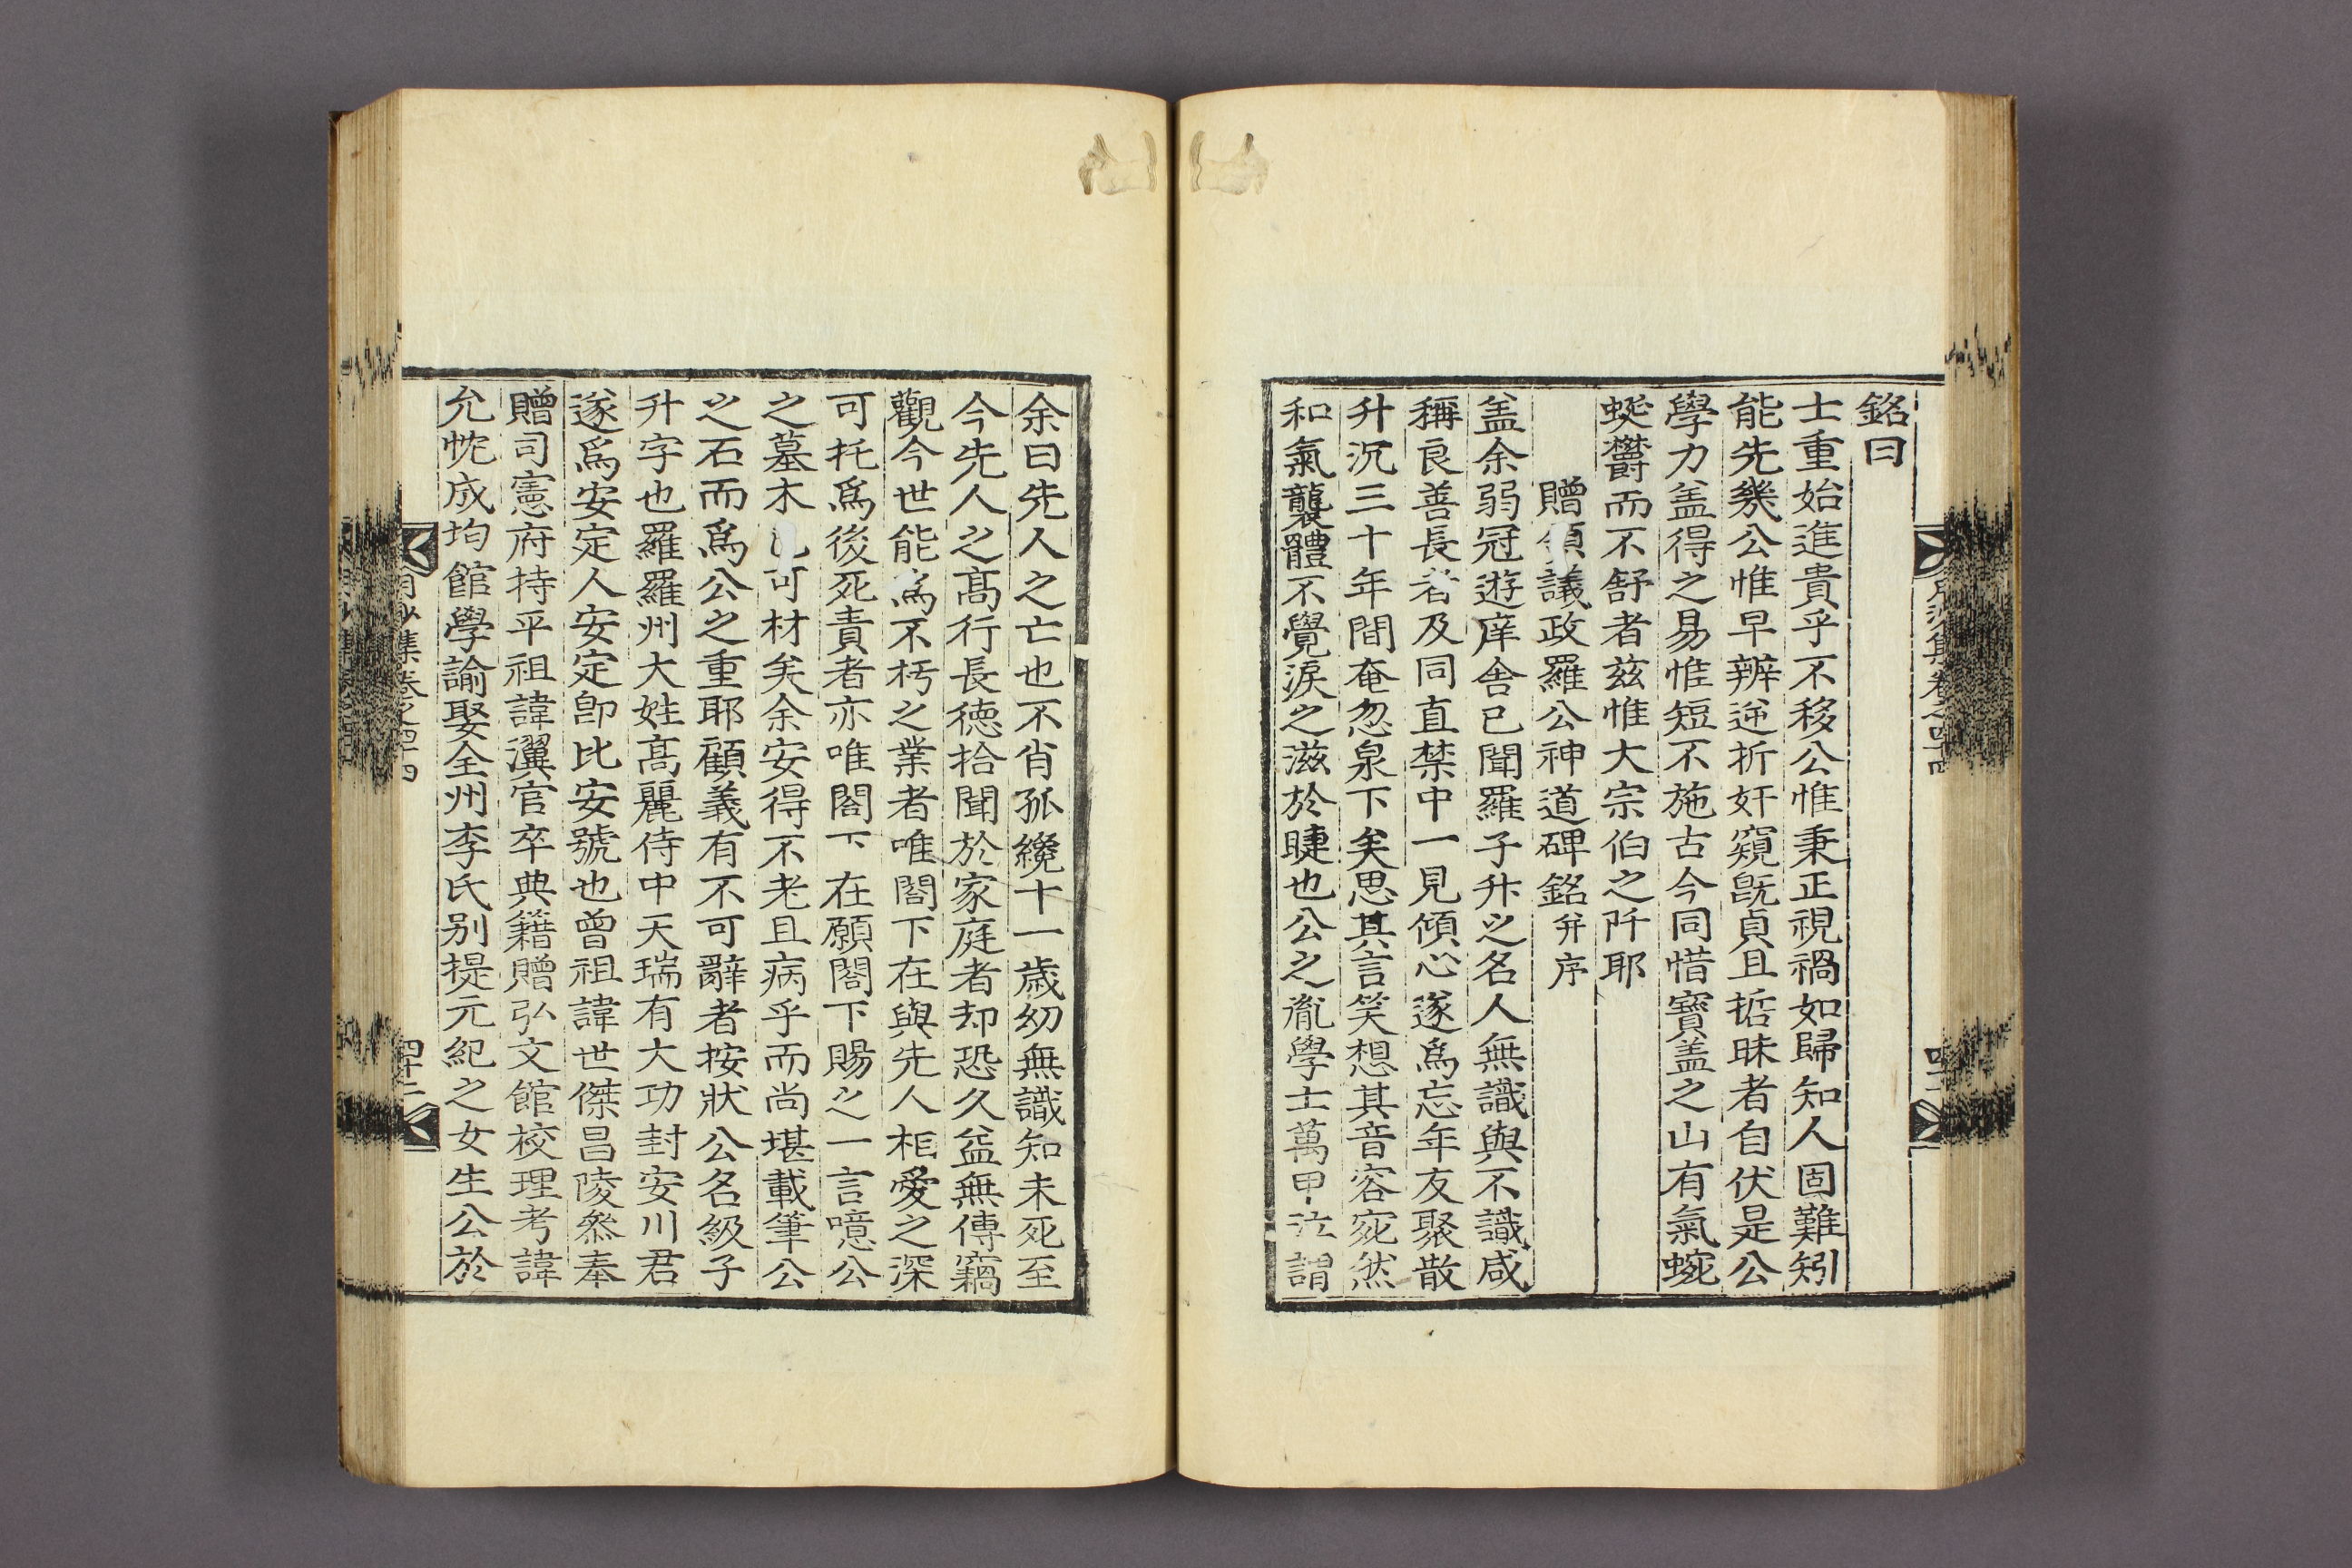 銘曰
士重始進貴乎不移公惟秉正視禍如歸知人固難矧
能先幾公惟早辨逆折奸窺旣貞且哲昧者自伏是公
學力盖得之易惟短不施古今同惜寶盖之山有氣蜿
蜒欝而不舒者玆惟大宗伯之阡耶
贈領議政羅公神道碑銘 幷序
盖余弱冠遊庠舍已聞羅子升之名人無識與不識咸
稱良善長者及同直禁中一見傾心遂爲忘年友聚散
升沉三十年間奄忽泉下矣思其言笑想其音容宛然
和氣襲體不覺淚之滋於睫也公之胤學士萬甲泣謂
余曰先人之亡也不肖孤纔十一歲幼無識知未死至
今先人之高行長德拾聞於家庭者却恐久益無傳竊
觀今世能爲不朽之業者唯閤下在與先人相愛之深
可托爲後死責者亦唯閤下在願閤下賜之一言噫公
之墓木已可材矣余安得不老且病乎而尚堪載筆公
之石而爲公之重耶顧義有不可辭者按狀公名級子
升字也羅羅州大姓高麗侍中天瑞有大功封安川君
遂爲安定人安定卽比安號也曾祖諱世傑昌陵叅奉
贈司憲府持平祖諱瀷官卒典籍贈弘文館校理考諱
允忱成均館學諭娶全州李氏别提元紀之女生公於
月沙集卷之四十四
四十二